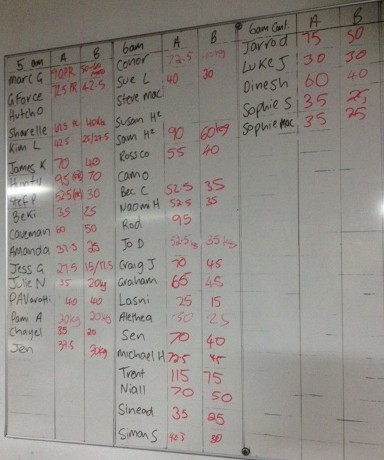 5 am A B
Marc G 70PR
G Force 72.5 PR 42.5
Hutcho
Sharelle 40kg
Kim L 42.5 25/27.5
James K 70 40
95 70
Stef P 52.5 30
Beki 35 25
Caveman 60 50
Amanda 37.5 25
Jess G 27.5 15/17.5
Julie N 35 20kg
PAVarotti 40 40
Pami A 30kg 20kg
Chayel 35 20
Jen 37.5 20kg
6am A B
Conor 72.5
Sue L 40 20
Steve mac
Susan H²
Sam H² 90 60kg
Rossco 55 40
Camo
Bec C 52.5 35
Naomi H 52.5 35
Rod 95
Jo D 52.5kg 35kg
Craig J 70 45
Graham 65 45
Lasni 25 15
Alethea 30 25
Sen 70 40
Michael H 72.5 45
Trent 115 75
Niall 70 50
Sinead 35 25
Simon S 30
6am Cont. A B
Jarrod 75 50
Luke J 30 30
Dinesh 60 40
Sophie S 35 25
Sophie Mac 35 25